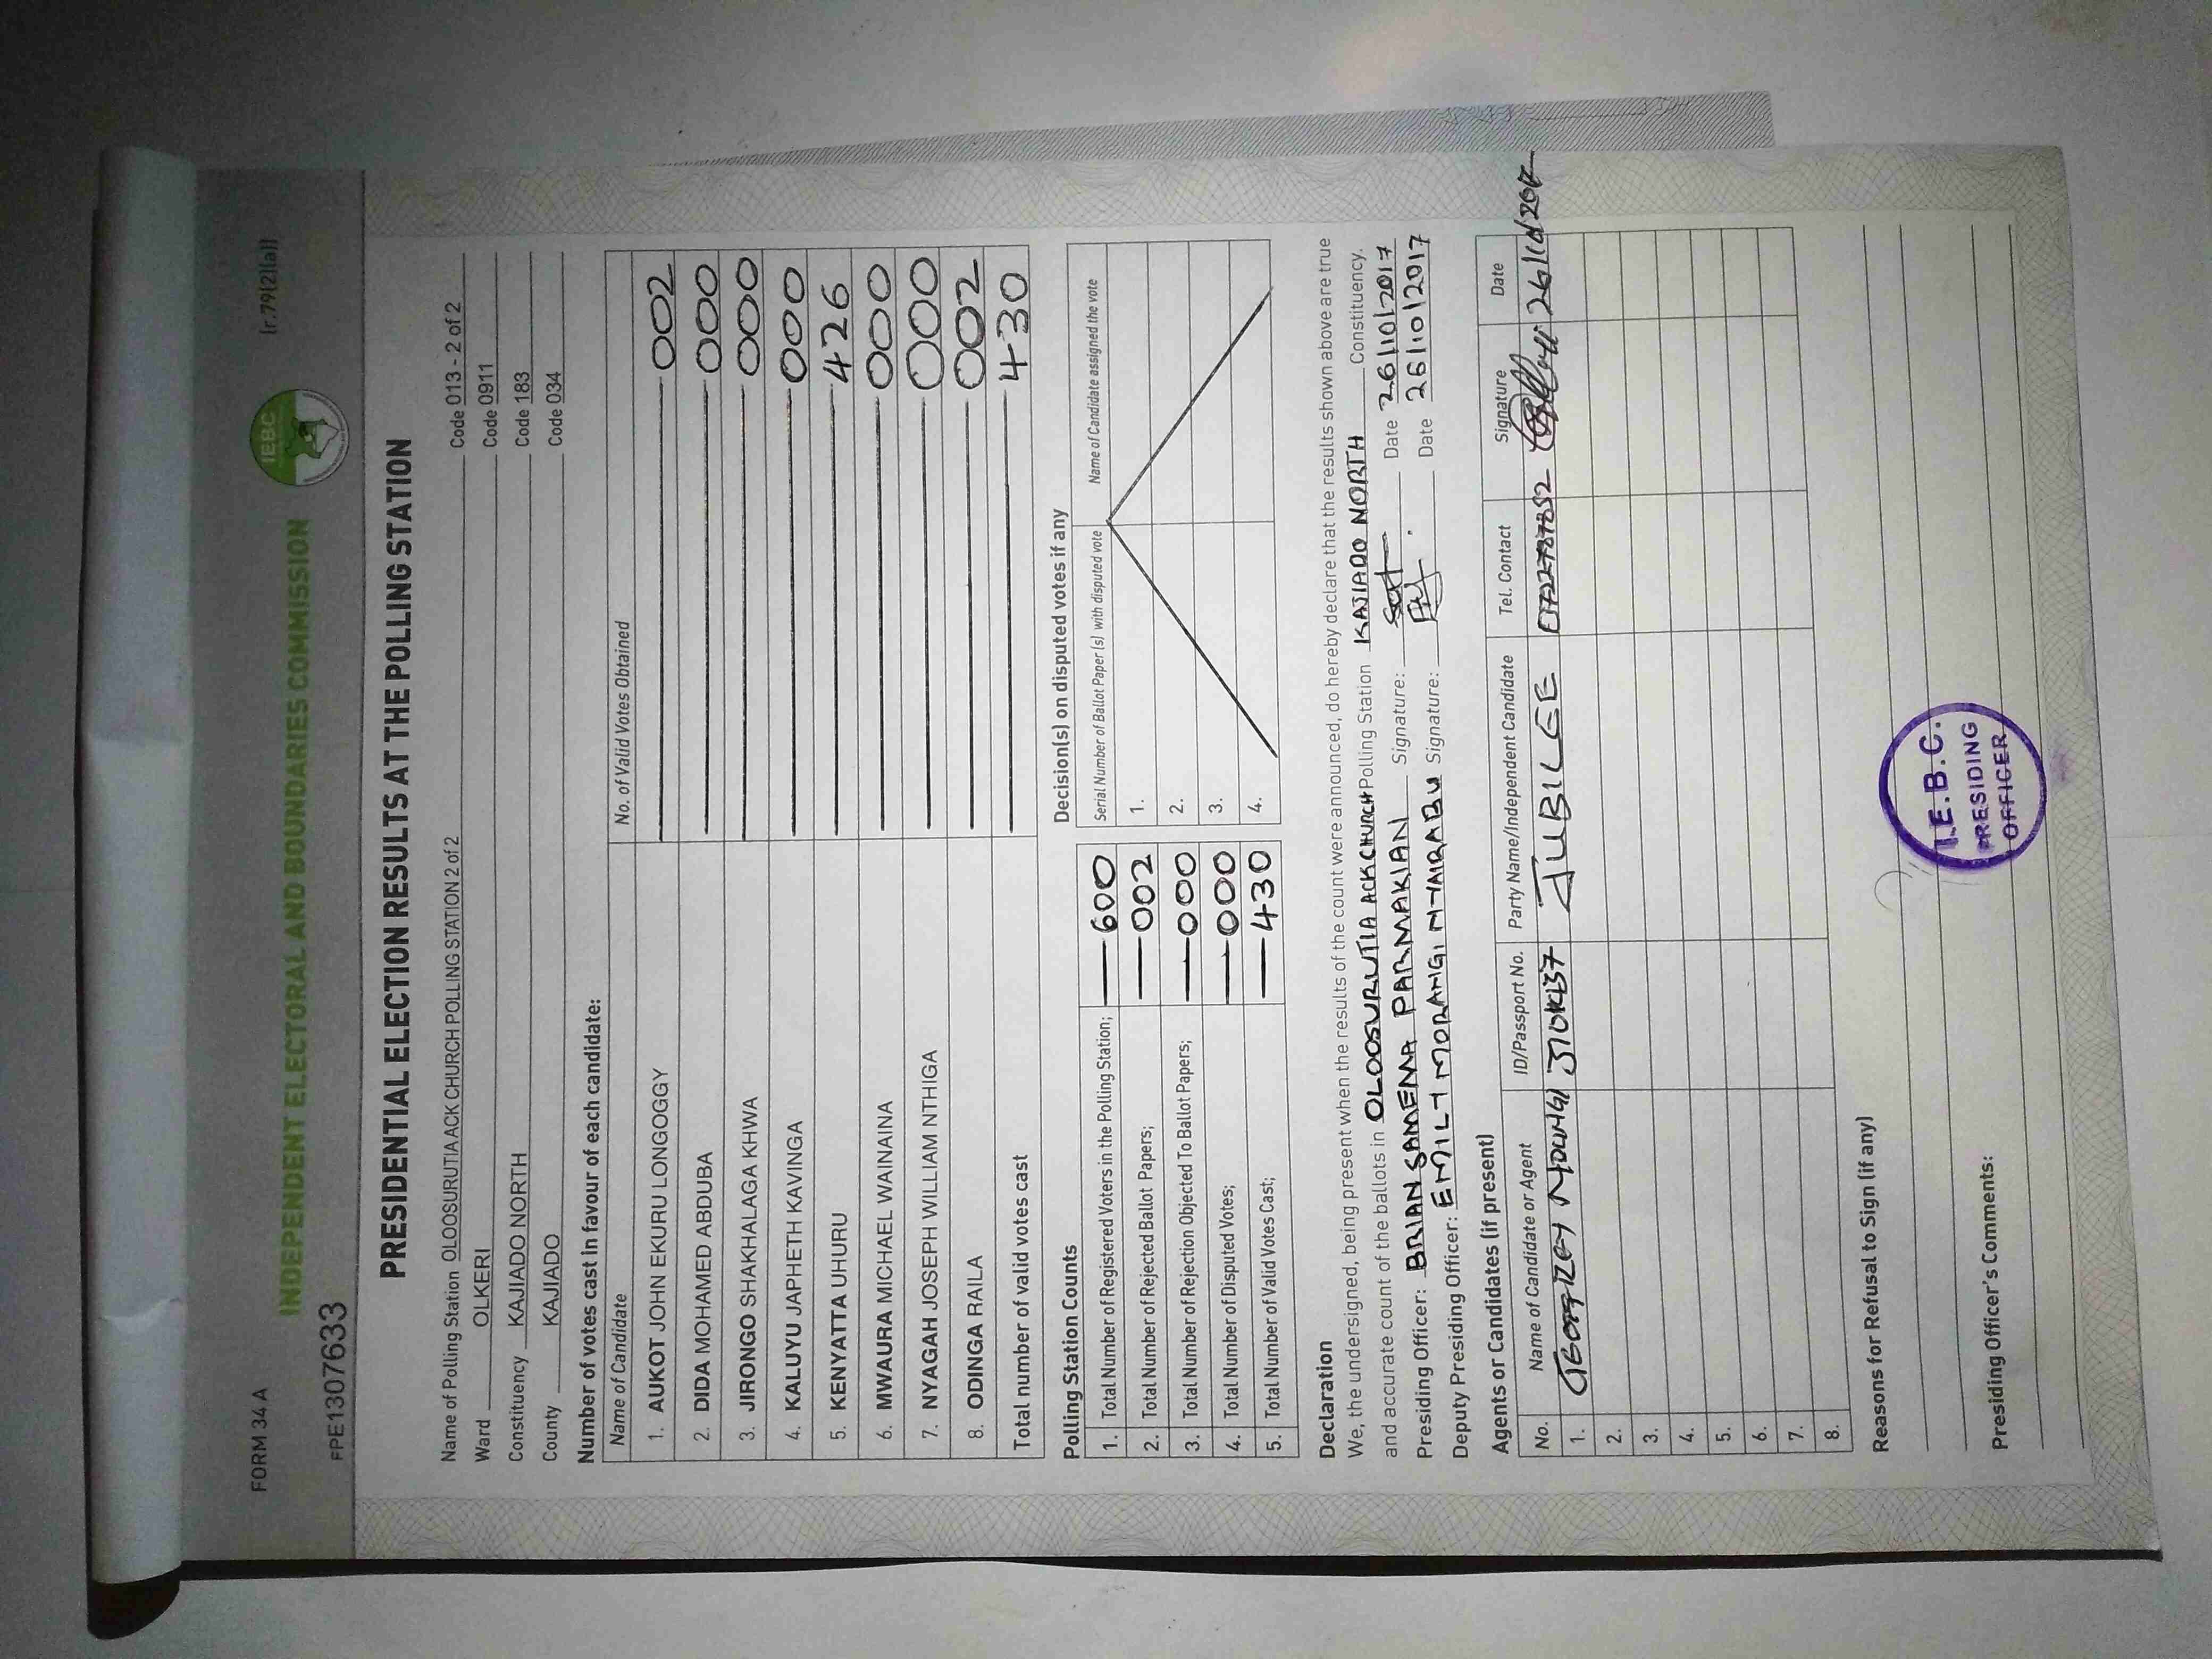 FORM 34 A
INDEPENDENT ELECTORAL AND BOUNDARIES COMMISSION
IEBC
(r.79(2)(a))
FPE1307633
PRESIDENTIAL ELECTION RESULTS AT THE POLLING STATION
Name of Polling Station OLOOSURUTIA ACK CHURCH POLLING STATION 2 of 2 Code 013 - 2 of 2
Ward OLKERI Code 0911
Constituency KAJIADO NORTH Code 183
County KAJIADO Code 034
Number of votes cast in favour of each candidate:
Name of Candidate No. of Valid Votes Obtained
1. AUKOT JOHN EKURU LONGOGGY 002
2. DIDA MOHAMED ABDUBA 000
3. JIRONGO SHAKHALAGA KHWA 000
4. KALUYU JAPHETH KAVINGA 000
5. KENYATTA UHURU 426
6. MWAURA MICHAEL WAINAINA 000
7. NYAGAH JOSEPH WILLIAM NTHIGA 000
8. ODINGA RAILA 002
Total number of valid votes cast 430
Polling Station Counts
1. Total Number of Registered Voters in the Polling Station; 600
2. Total Number of Rejected Ballot Papers; 002
3. Total Number of Rejection Objected To Ballot Papers; 000
4. Total Number of Disputed Votes; 000
5. Total Number of Valid Votes Cast; 430
Decision(s) on disputed votes if any
Serial Number of Ballot Paper (s) with disputed vote Name of Candidate assigned the vote
1.
2.
3.
4.
Declaration
We, the undersigned, being present when the results of the count were announced, do hereby declare that the results shown above are true
and accurate count of the ballots in OLOOSURUTIA ACK CHURCH Polling Station KAJIADO NORTH Constituency.
Presiding Officer: BRIAN SAMEENA PARMAKIAN Signature: Date 26/10/2017
Deputy Presiding Officer: EMILY MORANGI Signature: Date 26/10/2017
Agents or Candidates (if present)
No. Name of Candidate or Agent ID/Passport No. Party Name/Independent Candidate Tel. Contact Signature Date
1. JUBILEE
2.
3.
4.
5.
6.
7.
8.
Reasons for Refusal to Sign (if any)
I.E.B.C.
PRESIDING
OFFICER
Presiding Officer's Comments: